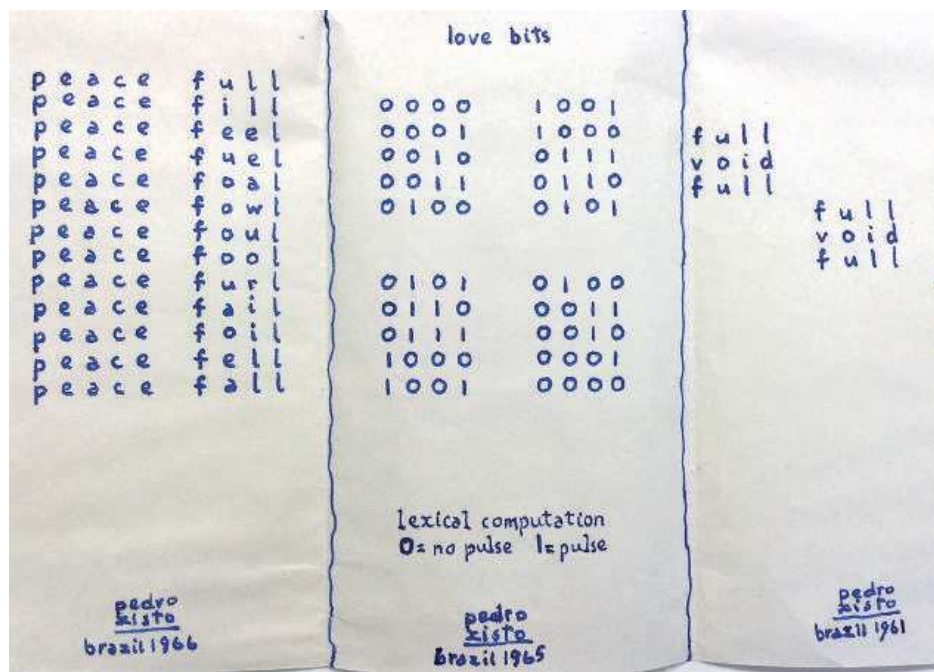 peace full
peace fill
peace feel
peace fuel
peace foal
peace fowl
peace foul
peace fool
peace furl
peace fail
peace foil
peace fell
peace fall
pedro
xisto
brazil 1966
love bits
0000 1001
0001 1000
0010 0111
0011 0110
0100 0101
0101 0100
0110 0011
0111 0010
1000 0001
1001 0000
lexical computation
0= no pulse 1= pulse
pedro
xisto
brazil 1965
full
void
full
full
void
full
pedro
xisto
brazil 1961